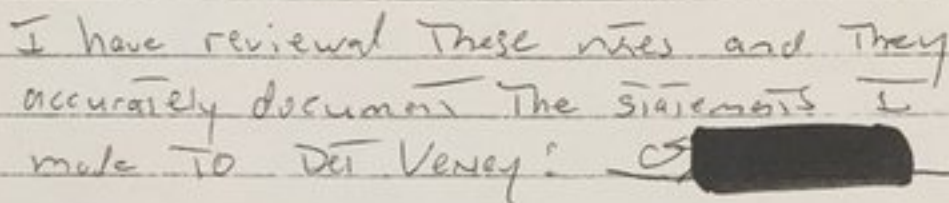 I have reviewed These notes and They
accurately document The statements I
made To Det Veney: